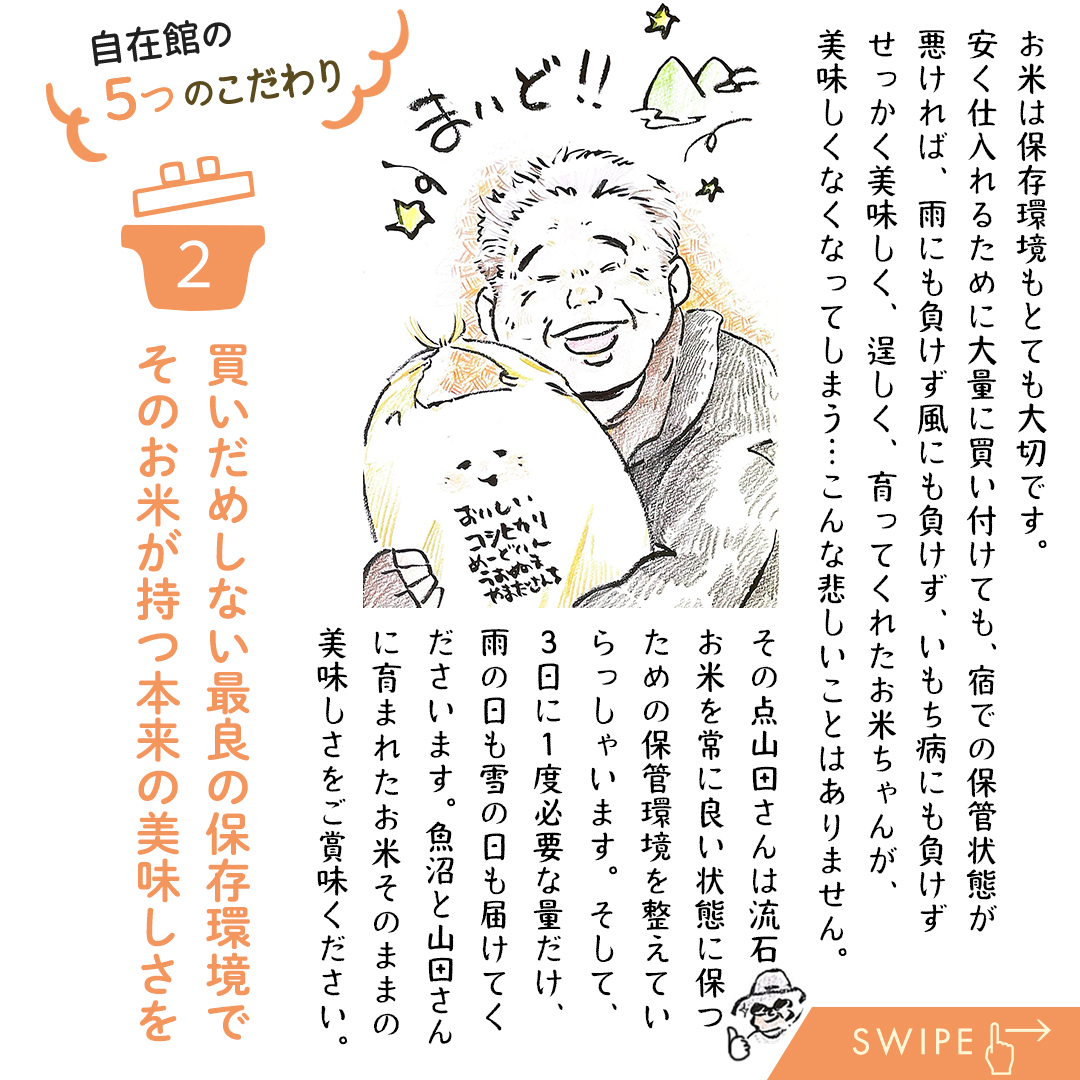 自在館の
5つのこだわり
2
買いだめしない最良の保存環境で
そのお米が持つ本来の美味しさを
まいど!!
お米は保存環境もとても大切です。
安く仕入れるために大量に買い付けても、宿での保管状態が
悪ければ、雨にも負けず風にも負けず、いもち病にも負けず
せっかく美味しく、逞しく、育ってくれたお米ちゃんが、
美味しくなくなってしまう…こんな悲しいことはありません。
おいしい
コシヒカリ
めーどいん
うおぬま
やまださんち
その点山田さんは流石
お米を常に良い状態に保つ
ための保管環境を整えてい
らっしゃいます。そして、
3日に1度必要な量だけ、
雨の日も雪の日も届けてく
ださいます。魚沼と山田さん
に育まれたお米そのままの
美味しさをご賞味ください。
SWIPE